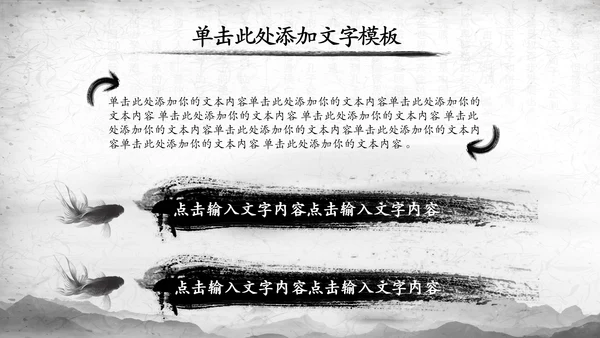 单击此处添加文字模板
单击此处添加你的文本内容单击此处添加你的文本内容单击此处添加你的
文本内容 单击此处添加你的文本内容 单击此处添加你的文本内容 单击此
处添加你的文本内容单击此处添加你的文本内容单击此处添加你的文本内
容单击此处添加你的文本内容 单击此处添加你的文本内容 。
点击输入文字内容,点击输入文字内容
点击输入文字内容,点击输入文字内容